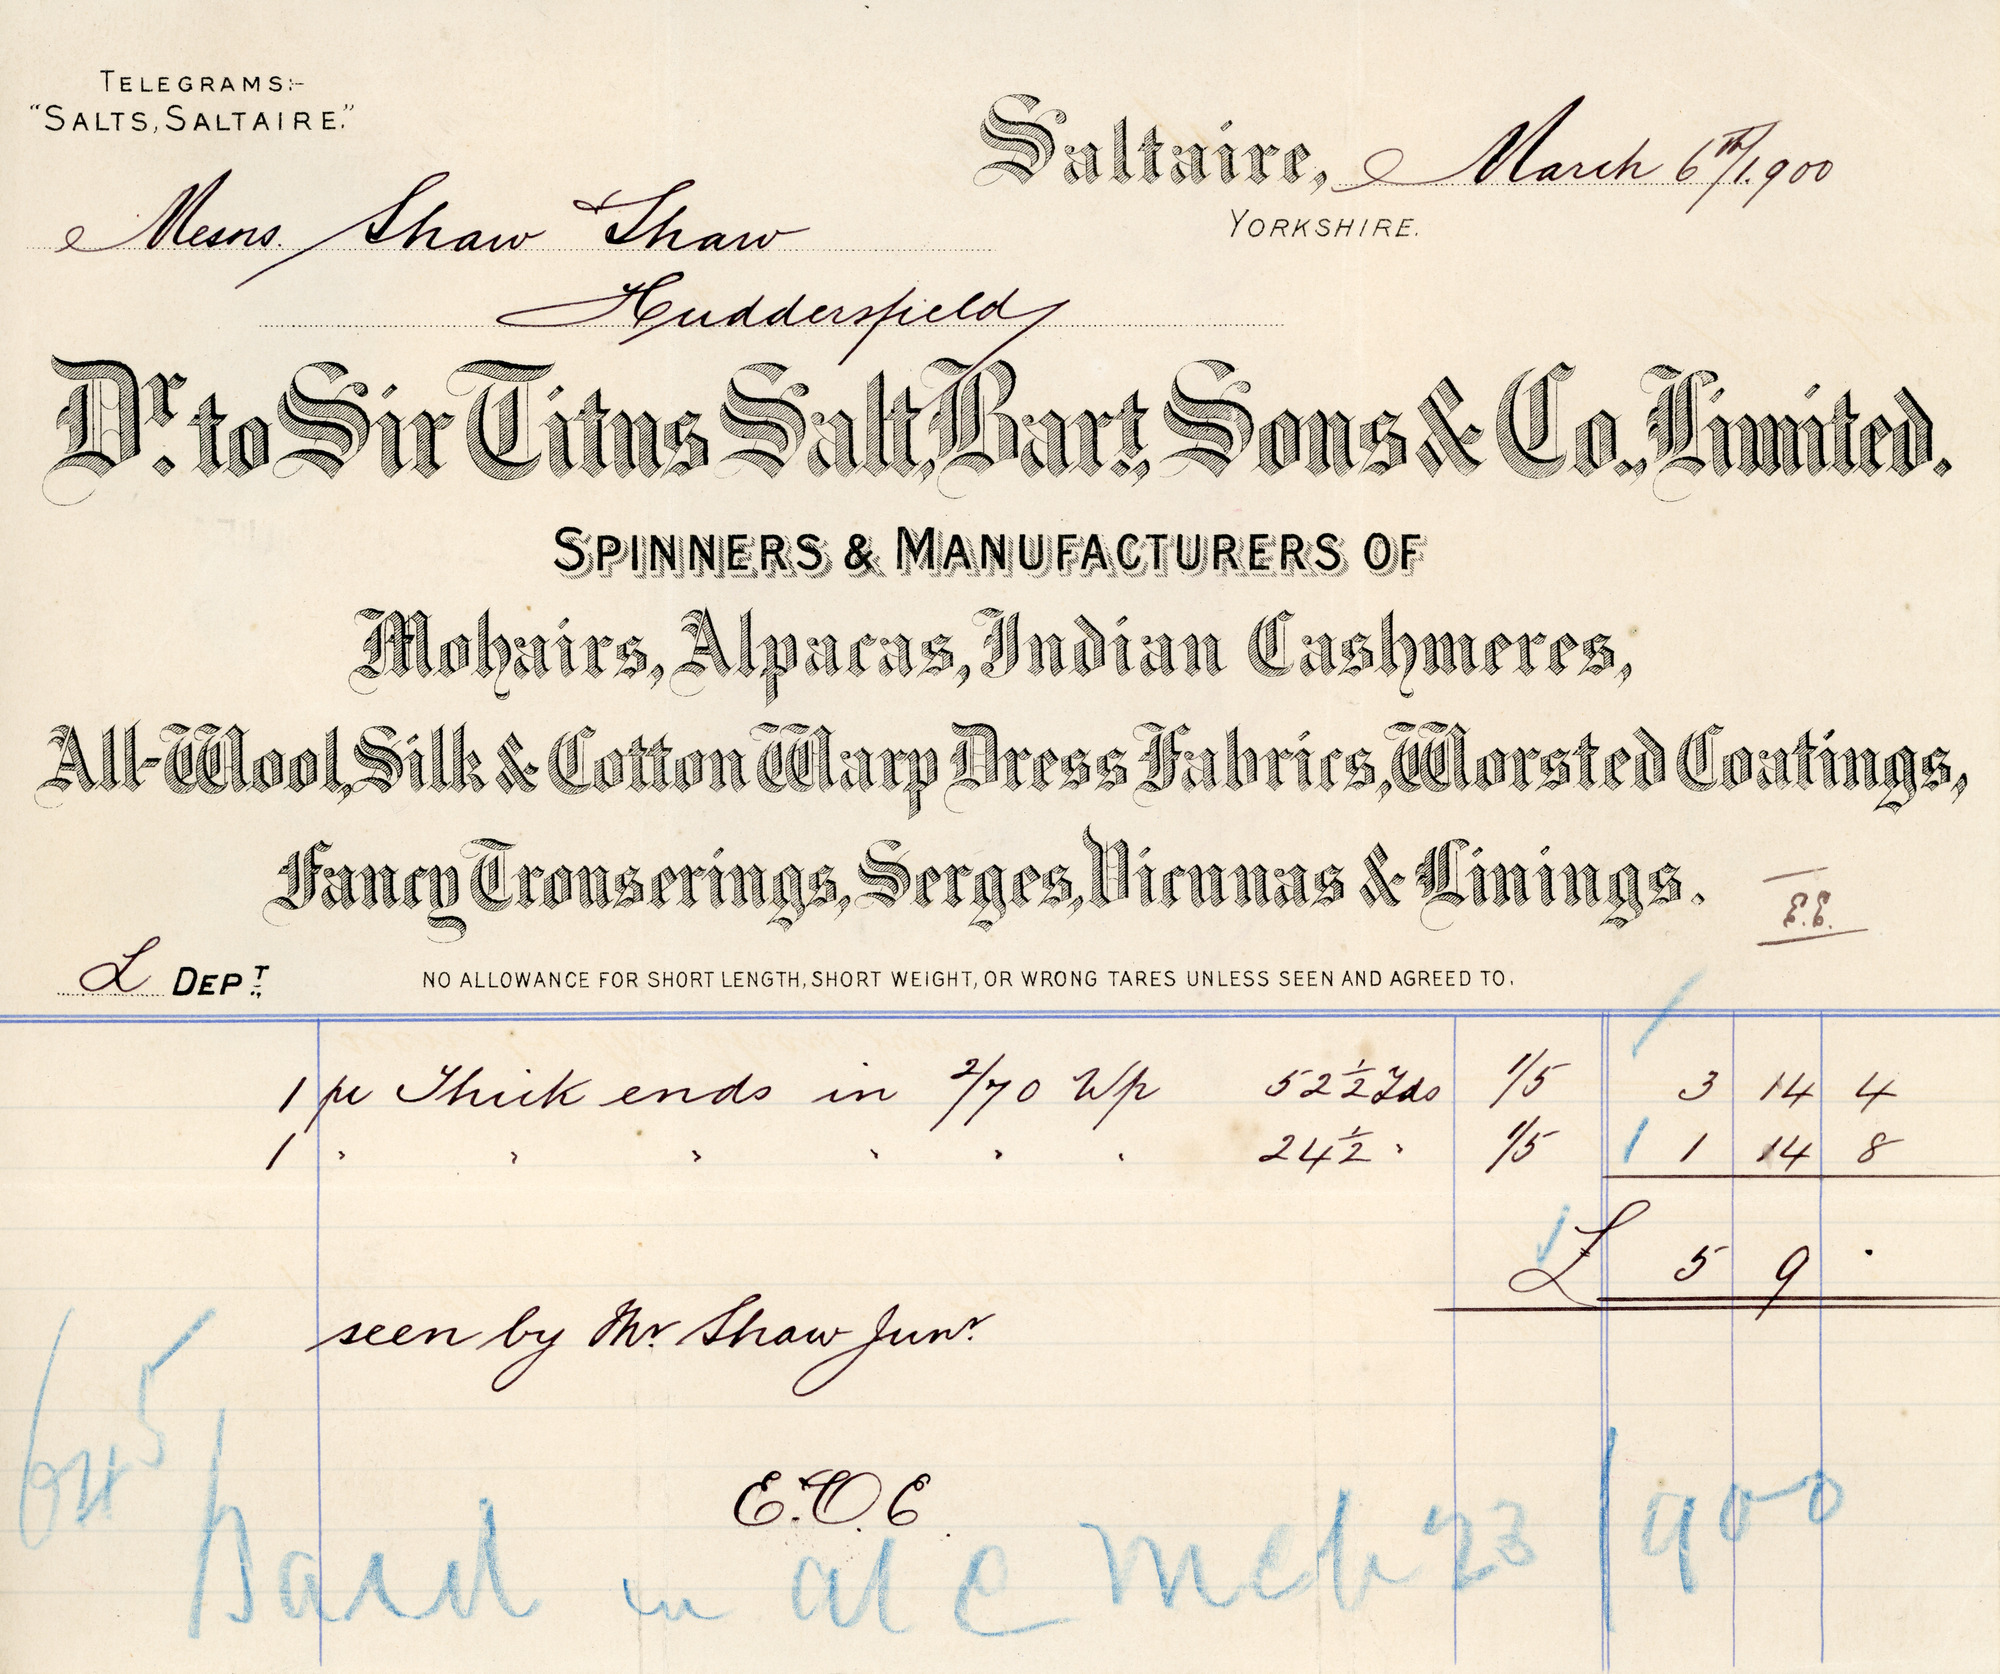 TELEGRAMS:-
"SALTS, SALTAIRE."
Saltaire, March 6th/1900
YORKSHIRE.
Messrs. Shaw & Shaw
Huddersfield
Dr. to Sir Titus Salt, Bart., Sons & Co., Limited.
SPINNERS & MANUFACTURERS OF
Mohairs, Alpacas, Indian Cashmeres,
All-Wool, Silk & Cotton Warp Dress Fabrics, Worsted Coatings,
Fancy Trouserings, Serges, Vicunas & Linings.
E.E.
L DEPT.
NO ALLOWANCE FOR SHORT LENGTH, SHORT WEIGHT, OR WRONG TARES UNLESS SEEN AND AGREED TO.
1 pe Thick ends in 2/70 Wp 52½ Yds 1/5 3 14 4
1 " " " " " " 24½ " 1/5 1 14 8
£ 5 9 .
seen by Mr. Shaw Junr.
E.O.E.
645
paid in a/c Mch 23 1900